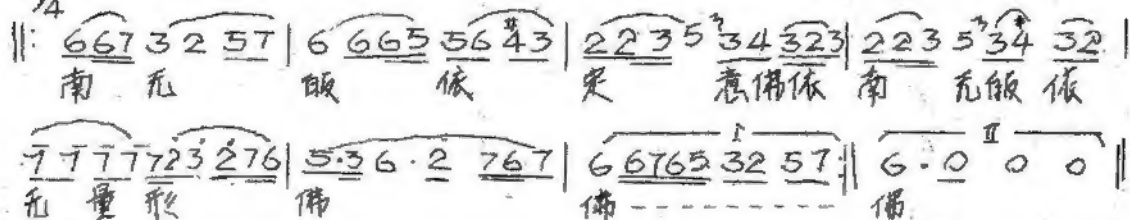 /4
‖: 667 3 2 57 | 6 665 56 #43 | 223 5 34 323 | 223 5 34 32 |
南 无 皈 依 定 意佛依 南 无皈 依
7 7 7 7 723 276 | 5·3 6·2 767 | I 6 6765 32 57 :‖ II 6·0 0 0 ‖
无 量 形 佛 佛 - - - - - - - - 佛